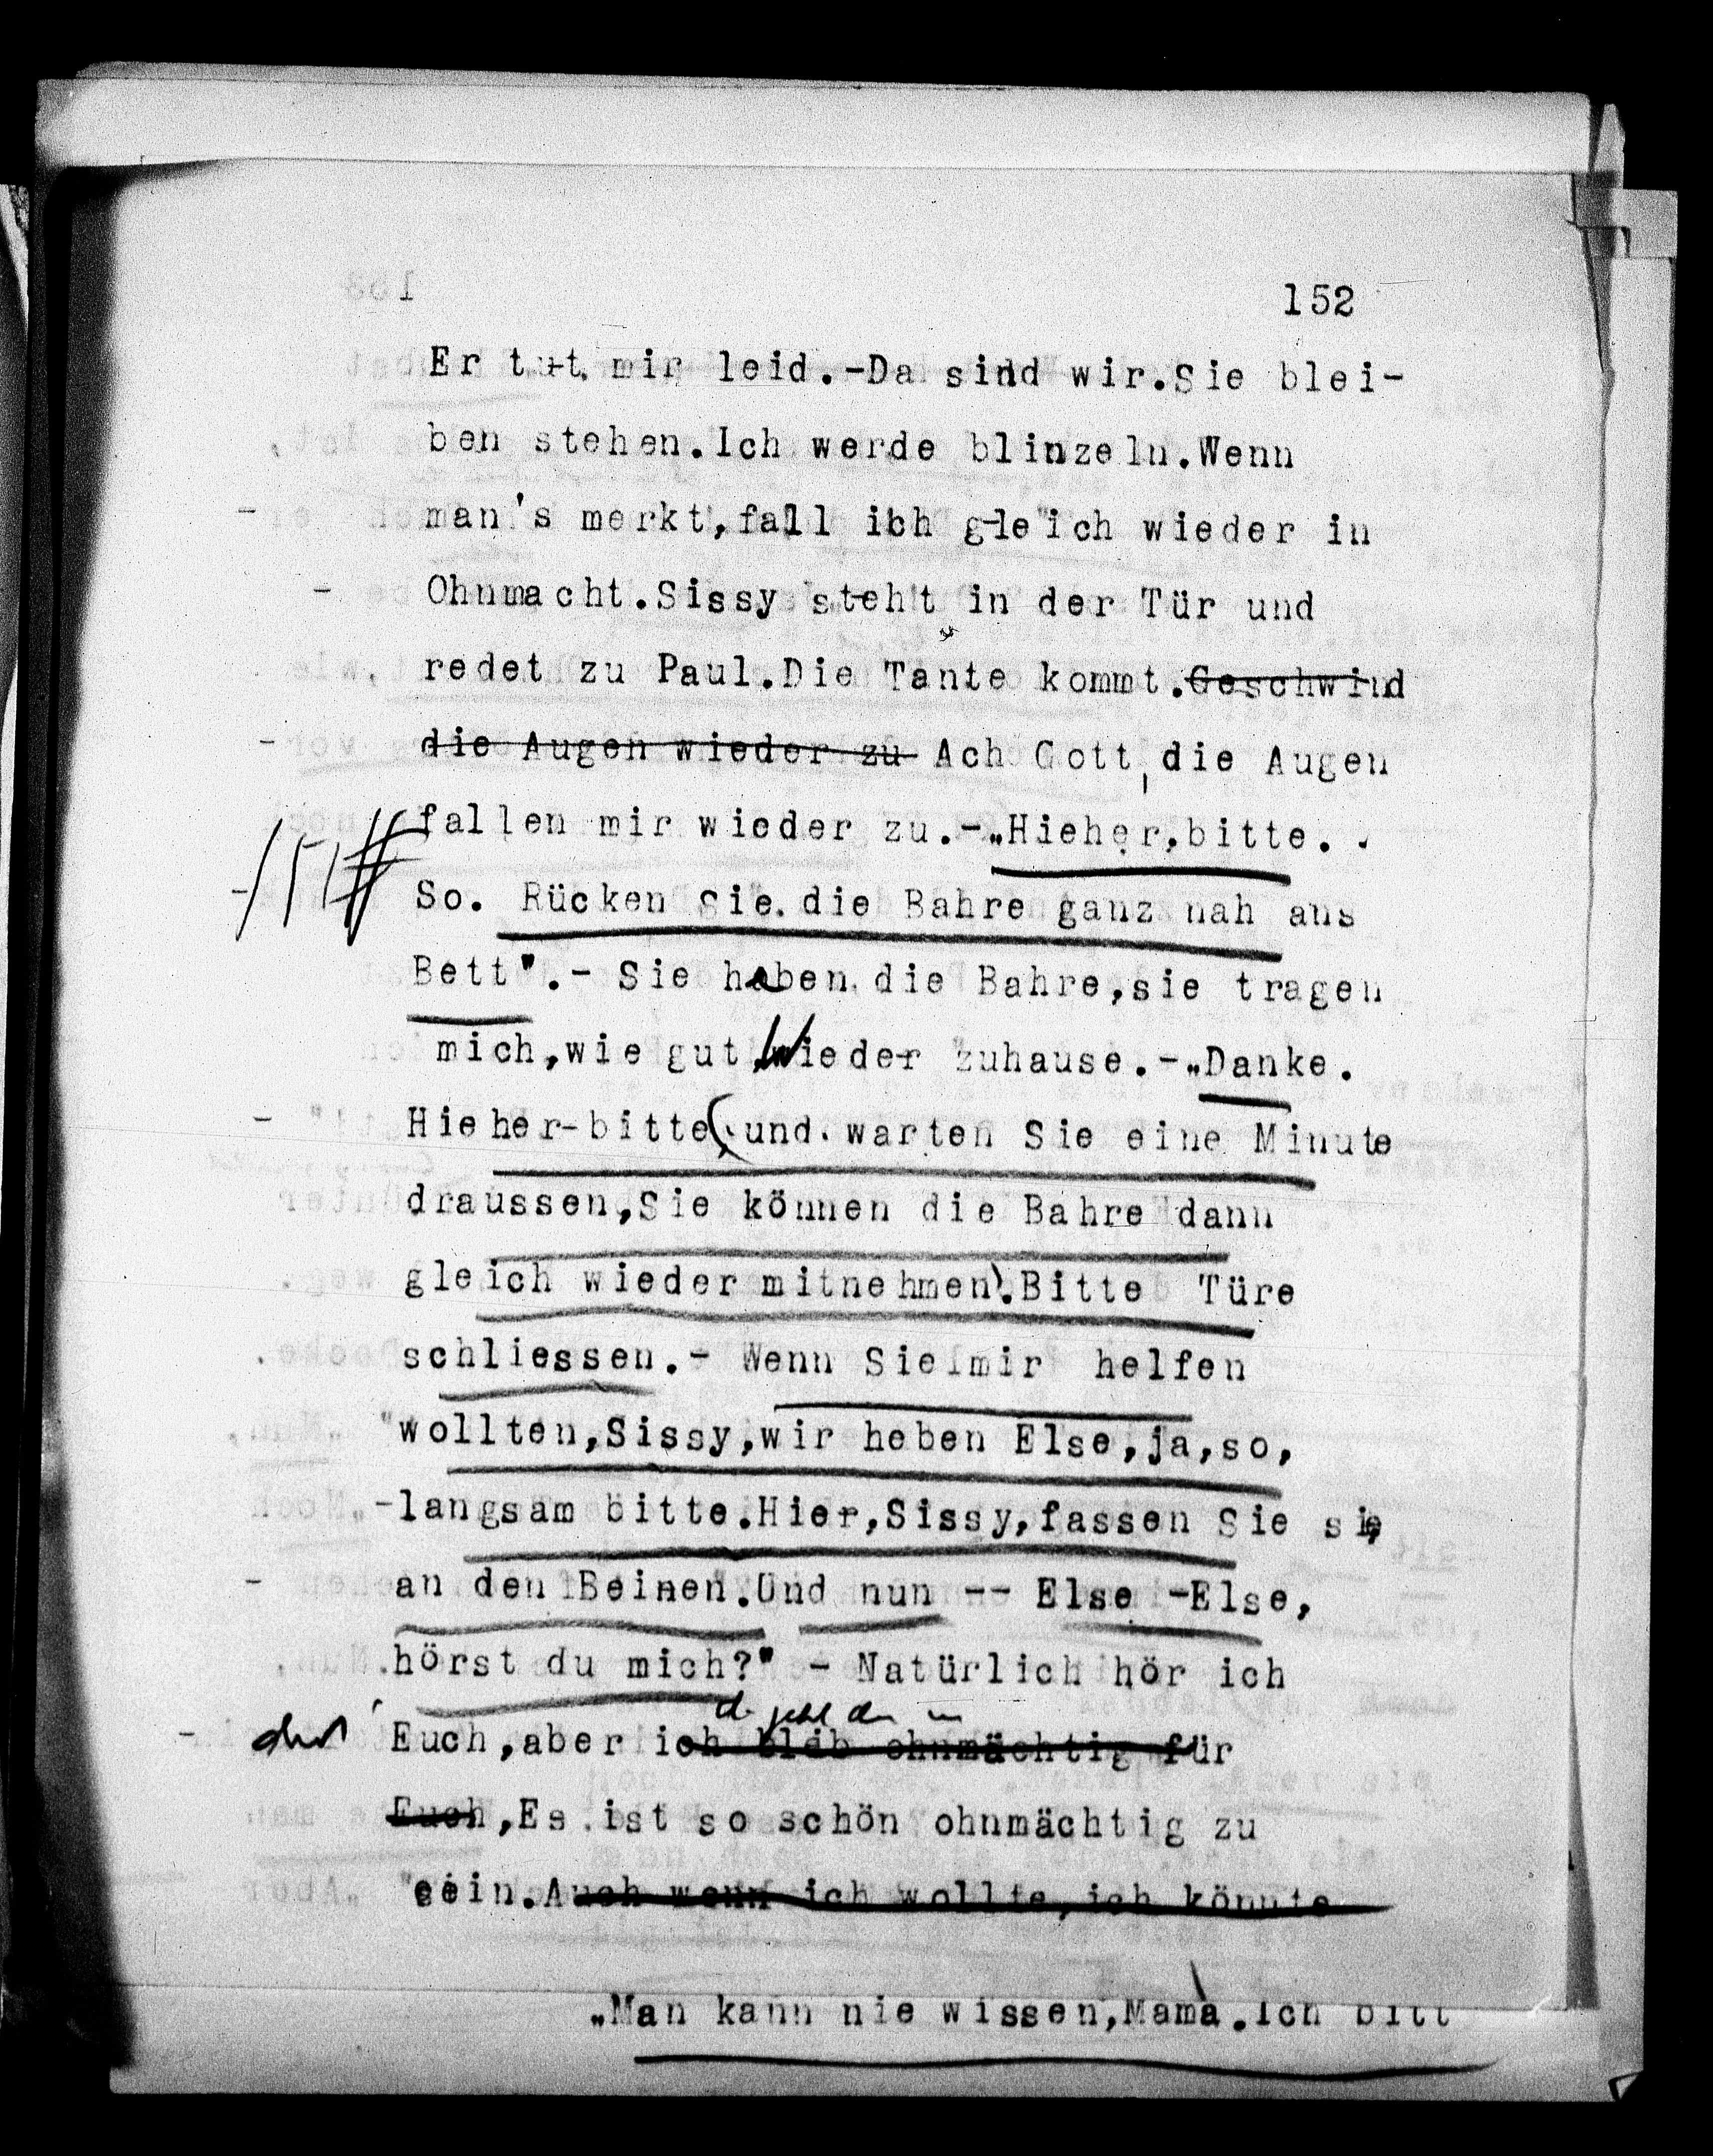 152
Er tut mir leid.-Da sind wir.Sie blei-
ben stehen.Ich werde blinzeln.Wenn
man's merkt,fall ich gleich wieder in
Ohnmacht.Sissy steht in der Tür und
redet zu Paul.Die Tante kommt.Geschwind
die Augen wieder zu Ach Gott,die Augen
fallen mir wieder zu.-„Hieher,bitte.
So. Rücken Sie die Bahre ganz nah ans
Bett".- Sie haben die Bahre,sie tragen
mich,wie gut,Wieder zuhause.-„Danke.
Hieher-bitte(und warten Sie eine Minute
draussen,Sie können die Bahre dann
gleich wieder mitnehmen).Bitte Türe
schliessen.- Wenn Sie mir helfen
"wollten,Sissy,wir heben Else,ja,so,
-langsam bitte.Hier,Sissy,fassen Sie sie
an den Beinen.Und nun -- Else -Else,
hörst du mich?" - Natürlich hör ich
Euch,aber ich bleib ohnmächtig für
Euch,Es ist so schön ohnmächtig zu
sein.Auch wenn ich wollte,ich könnte
„Man kann nie wissen,Mama.Ich bitt